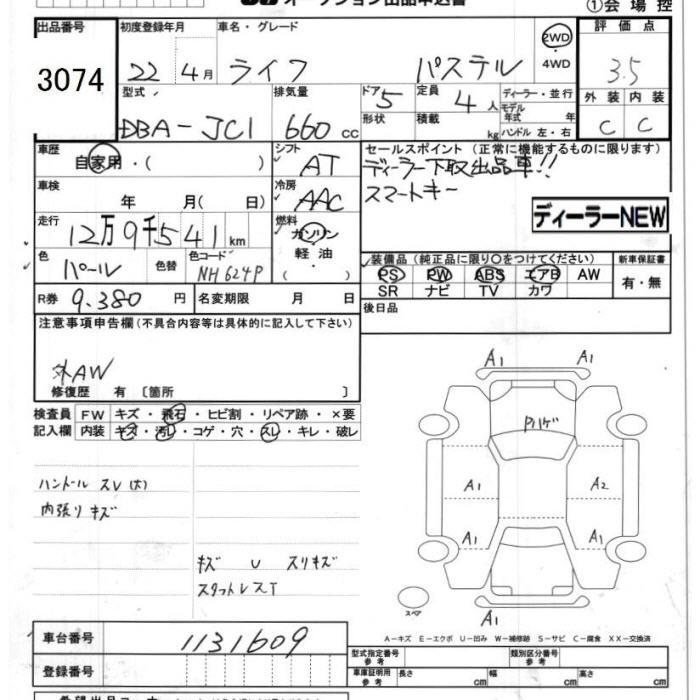 オークション出品申込書
①会場控
出品番号 3074
初度登録年月 22 4月
車名・グレード ライフ パステル
2WD・4WD
評価点 3.5
外装 内装
C C
型式 DBA-JC1
排気量 660cc
ドア 5
形状
定員 4人
積載 kg
ディーラー・並行
モデル年式 年式
ハンドル 左・右
車歴 自家用・( )
シフト AT
セールスポイント(正常に機能するものに限ります)
ディーラー下取出品車!!
スマートキー
車検 年 月( 日)
冷房 AAC
ディーラーNEW
走行 12万9千541km
燃料 ガソリン
軽油
・( )
色 パール 色替
色コード NH624P
装備品(純正品に限り〇をつけてください)
PS PW ABS エアB AW
SR ナビ TV カワ
新車保証書
有・無
R券 9.380円
名変期限 月 日
後日品
注意事項申告欄(不具合内容等は具体的に記入して下さい)
外AW
修復歴 有 〔箇所 〕
検査員記入欄
FW キズ・飛石・ヒビ割・リペア跡・×要
内装 キズ・汚レ・コゲ・穴・スレ・キレ・破レ
ハンドル スレ(大)
内張りキズ
キズ U スリキズ
スタットレスT
A1 A1
Pハゲ
A1 A2
A1 A1
A1
スペア
A-キズ E-エクボ U-凹み W-補修跡 S-サビ C-腐食 XX-交換済
車台番号 1131609
登録番号
型式指定番号 参考
類別区分番号 参考
車庫証明用 参考 長さ cm 幅 cm 高さ cm
希望出品コーナー